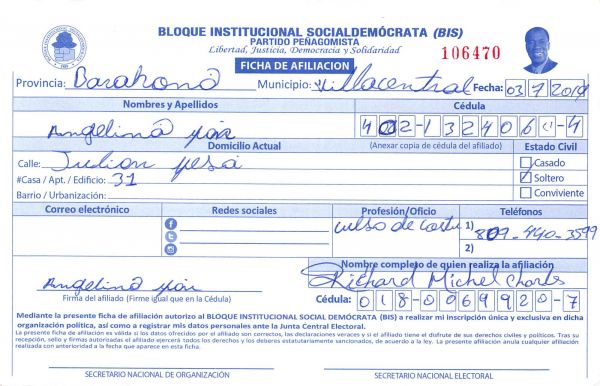 BLOQUE INSTITUCIONAL SOCIALDEMÓCRATA (BIS)
PARTIDO PEÑAGOMISTA
Libertad, Justicia, Democracia y Solidaridad
106470
FICHA DE AFILIACION
Provincia: Barahona Municipio: Villa central Fecha: 03/7/2019
Nombres y Apellidos Cédula
Angelina 402-132406
Domicilio Actual (Anexar copia de cédula del afiliado) Estado Civil
Calle: Julion pesa Casado
#Casa / Apt. / Edificio: 31 Soltero
Barrio / Urbanización: Conviviente
Correo electrónico Redes sociales Profesión/Oficio Teléfonos
curso de costu 1) 809-440-3599
2)
Nombre completo de quien realiza la afiliación
Angelina Richard Michel Charles
Firma del afiliado (Firme igual que en la Cédula) Cédula: 018-0069920-7
Mediante la presente ficha de afiliación autorizo al BLOQUE INSTITUCIONAL SOCIAL DEMÓCRATA (BIS) a realizar mi inscripción única y exclusiva en dicha
organización política, así como a registrar mis datos personales ante la Junta Central Electoral.
La presente ficha de afiliación es válida si los datos ofrecidos por el afiliado son correctos, las declaraciones veraces y si el afiliado tiene el disfrute de sus derechos civiles y políticos. Tras su
recepción, sello y firmas autorizadas el afiliado ejercerá todos los derechos y los deberes estatutariamente sancionados, de acuerdo a la ley. La presente afiliación anula cualquier afiliación
realizada con anterioridad a la fecha que aparece en esta ficha.
SECRETARIO NACIONAL DE ORGANIZACIÓN SECRETARIO NACIONAL ELECTORAL